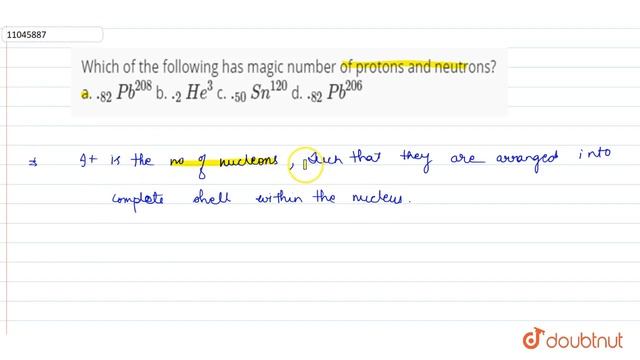 11045887
Which of the following has magic number of protons and neutrons?
a. .₈₂ Pb²⁰⁸ b. .₂ He³ c. .₅₀ Sn¹²⁰ d. .₈₂ Pb²⁰⁶
⇒ It is the no of nucleons, such that they are arranged into
complete shell within the nucleus.
doubtnut